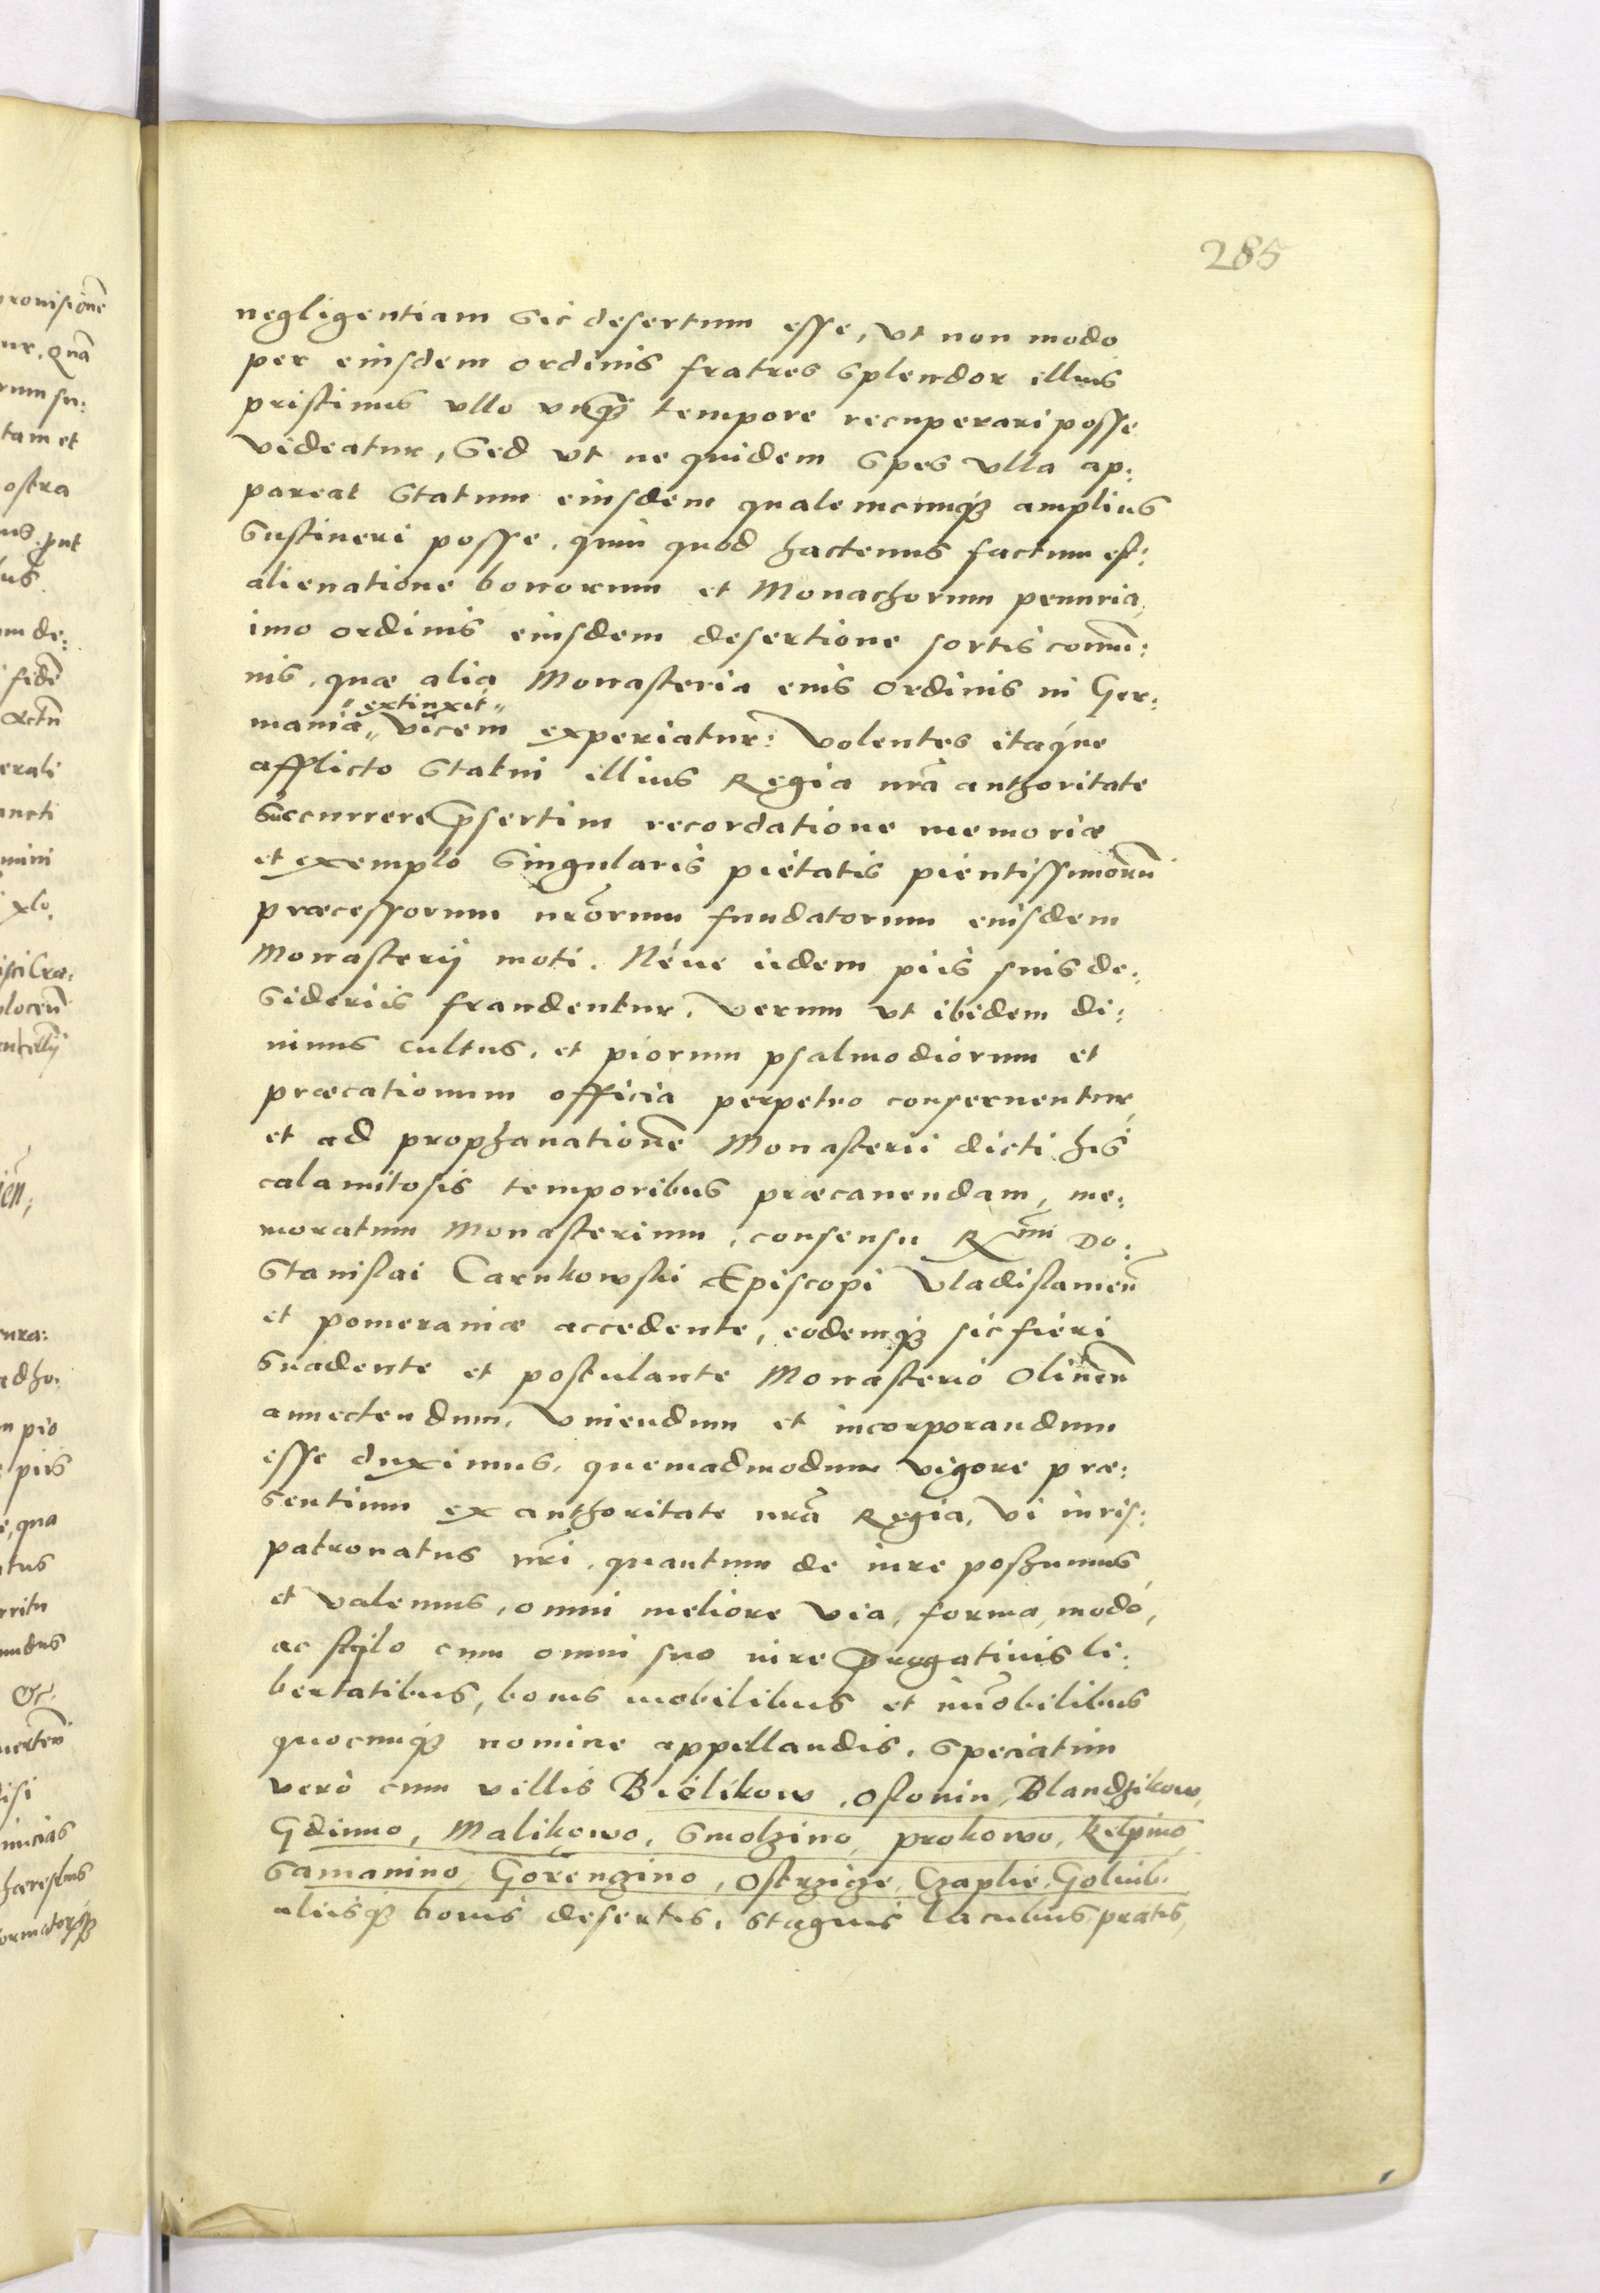 285
negligentiam sic desertum esse, vt non modo
per eiusdem ordinis fratres splendor illius
pristinus vllo vnq̃ tempore recuperari posse
videatur, sed vt ne quidem spes vlla ap:
pareat statum eiusdem qualemcunq3 amplius
sustineri posse, quin quod hactenus factum est:
alienatione bonorum et Monachorum penuria,
imo ordinis eiusdem desertione sortis com̃u:
nis, quæ alia Monasteria eius ordinis in Ger:
" extinxit "
mania " vicem experiatur: Volentes itaque
afflicto statui illius Regia nrã authoritate
succurrere p̃sertim recordatione memoriæ
et exemplo singularis pietatis pientissimorũ
præcessorum nrõrum fundatorum eiusdem
Monasterij moti. Néue iidem piis suis de:
sideriis fraudentur, verum vt ibidem di:
uinus cultus, et piorum psalmodiorum et
præcationum officia perpetuo conseruentur,
et ad prophanationẽ Monasterii dicti his
calamitosis temporibus præcauendam, me:
moratum Monasterium, consensu Rmi Do:
Stanislai Carnkowski Episcopi Vladislauieñ
et pomeraniæ accedente, eodemq3 sic fieri
suadente et postulante Monasterio Oliueñ
annectendum, vniendum et incorporandum
esse duximus, quemadmodum vigore præ:
sentium ex authoritate nrã Regia, vi iuris:
patronatus nrĩ, quantum de iure possumus
et valemus, omni meliore via, forma, modo,
ac stylo cum omni suo iure p̃rogatiuis li:
bertatibus, bonis mobilibus et im̃obilibus
quocunq3 nomine appellandis, speciatim
verò cum villis Bielikow, Oslonin, Blandzikow,
Gdinno, Malikowo, Smolzino, prokowo, Kelpino,
Samanino, Gorenzino, Ostrzicze, Czaplie, Goliub.
aliisq3 bonis desertis, stagnis lacubus, pratis,